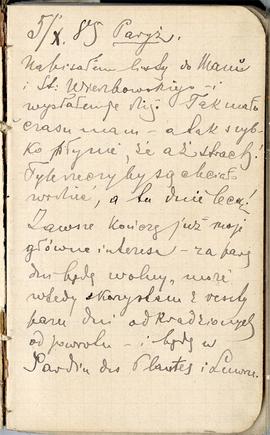 5/X. 85 Paryż.
Napisałem listy do Mamy
i St. Wierzbowskiego – i
wysłałem je dziś. Tak mało
czasu mam – a tak szyb-
ko płynie, że aż strach!
Tyle rzeczy by się chciało
, a tu dnie lecą!
Zawsze kończę już moje
główne interesa – za parę
dni będę wolny, może
wtedy skorzystam z reszty
paru dni odkradzionych
od powrotu – i będę w
Jardin des Plantes i Luwrze.